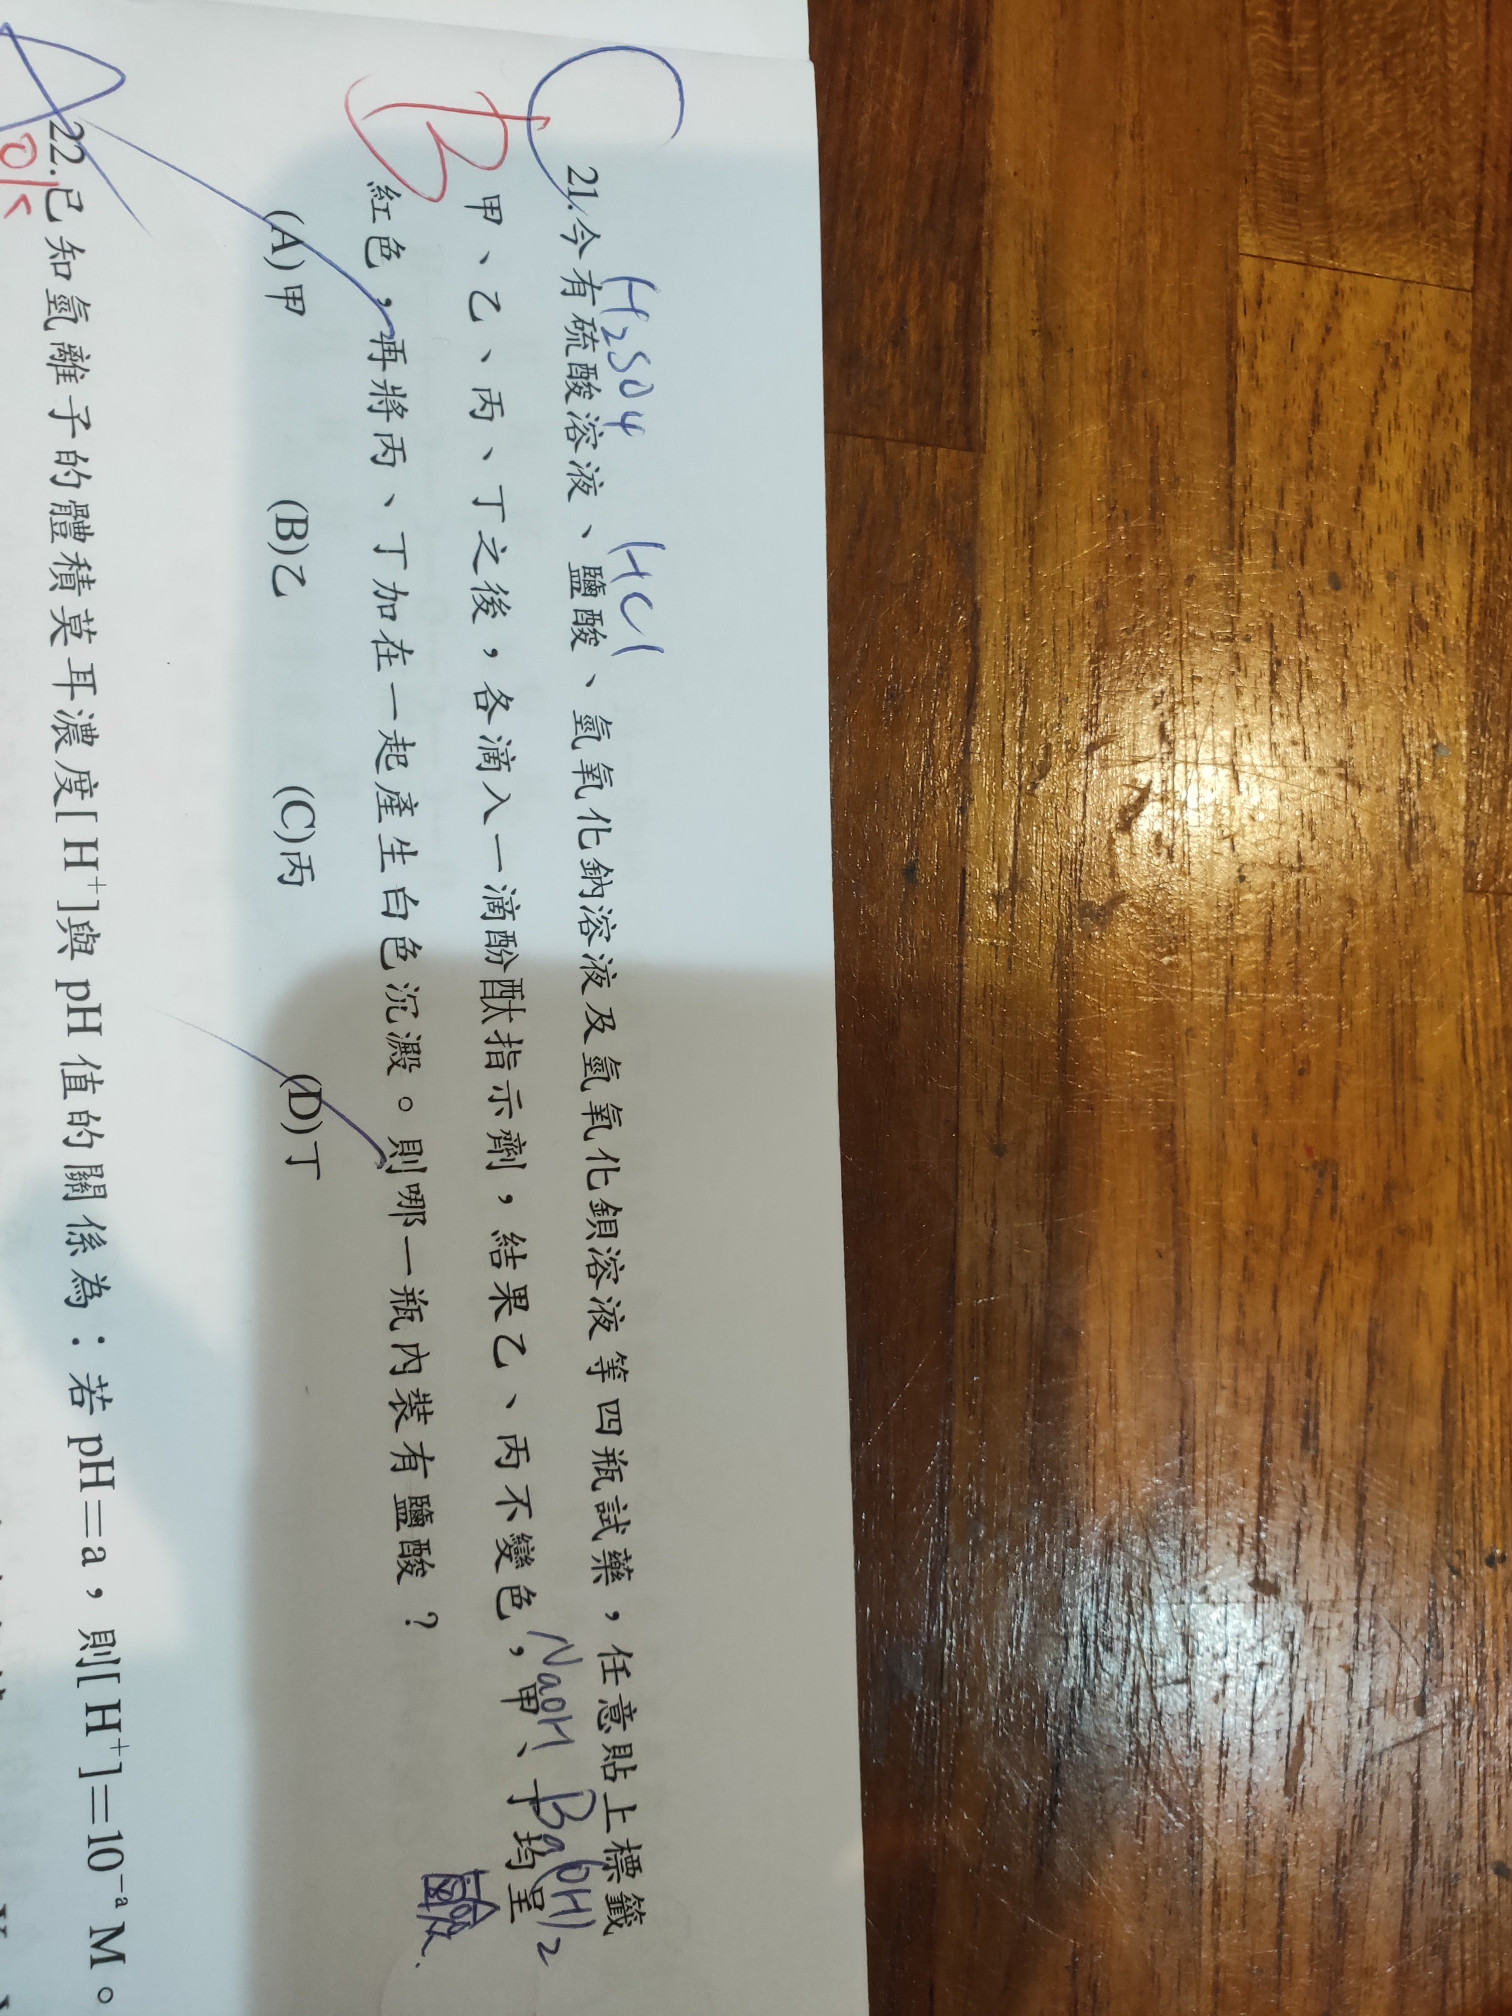 C
B
H2SO4 HCl
21.今有硫酸溶液、鹽酸、氫氧化鈉溶液及氫氧化鋇溶液等四瓶試藥，任意貼上標籤
甲、乙、丙、丁之後，各滴入一滴酚酞指示劑，結果乙、丙不變色，甲、丁均呈
NaOH Ba(OH)2
紅色，再將丙、丁加在一起產生白色沉澱。則哪一瓶內裝有鹽酸？
(A)甲 (B)乙 (C)丙 (D)丁
A
22.已知氫離子的體積莫耳濃度[H+]與 pH 值的關係為：若 pH=a，則[H+]=10−a M。